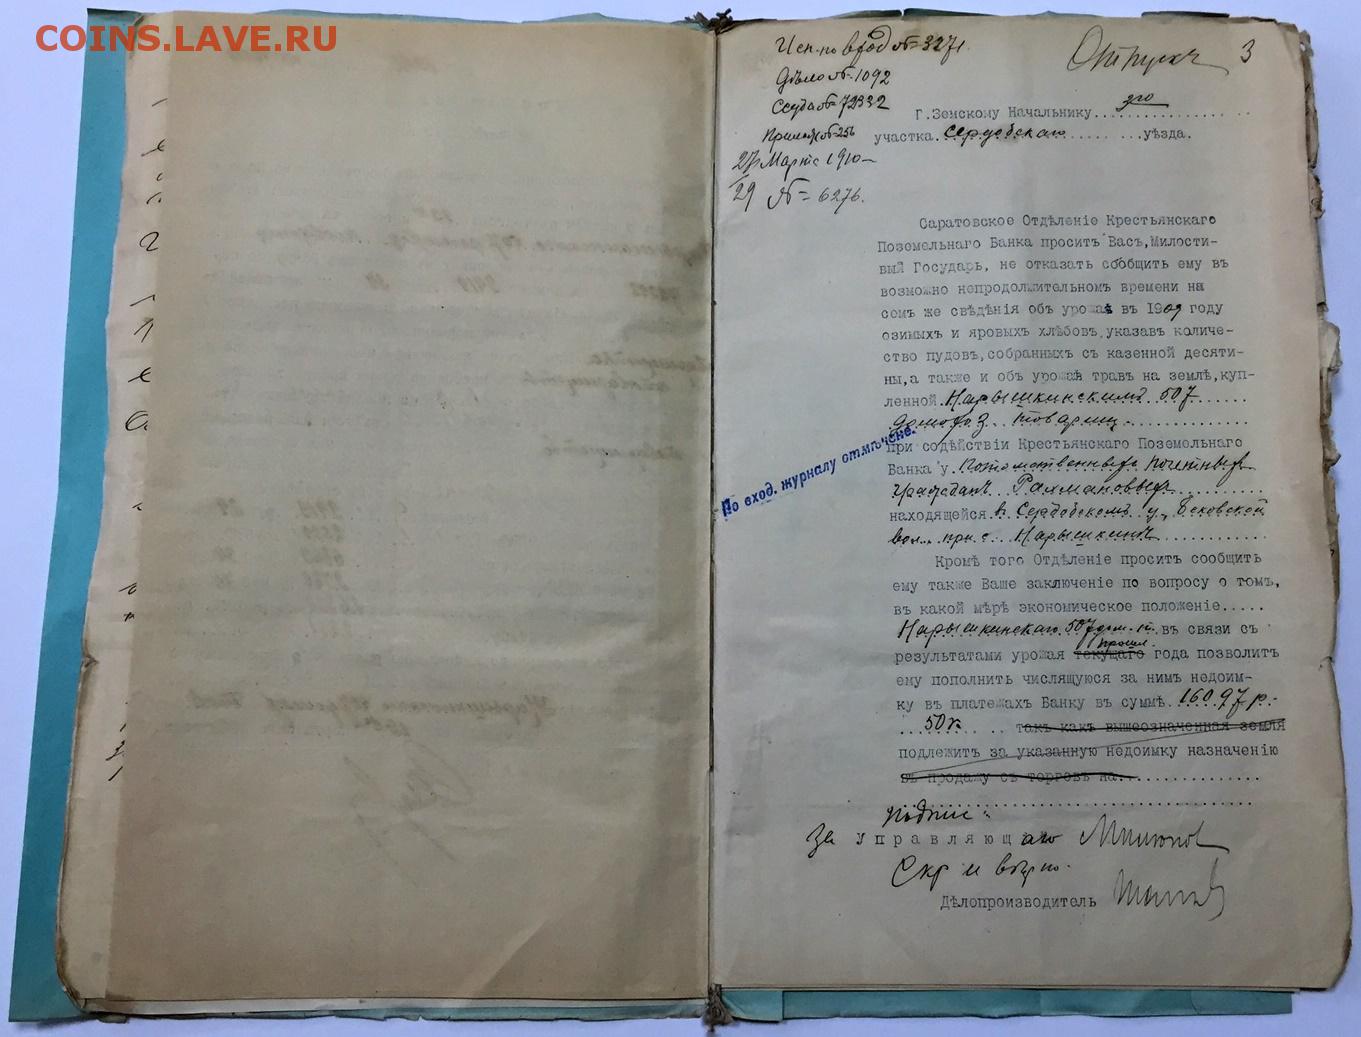 COINS.LAVE.RU
Исп. по вход № 3271
Дѣло № 1092
Ссуда № 72332
27 Марта 1910
29 № 6276.
Отпускъ 3
Г. Земскому Начальнику... 3го
участка. Сердобскаго ...уѣзда.
Саратовское Отдѣленіе Крестьянскаго
Поземельнаго Банка проситъ Васъ, Милости-
вый Государь, не отказать сообщить ему въ
возможно непродолжительном времени на
семъ же свѣдѣнія объ урожаѣ въ 1909 году
озимыхъ и яровыхъ хлѣбовъ, указавъ количе-
ство пудовъ, собранныхъ съ казенной десяти-
ны, а также и объ урожаѣ травъ на землѣ, куп-
ленной. Нарышкинскимъ 507
домохоз. товарищ.
при содѣйствіи Крестьянскаго Поземельнаго
Банка у. Потомственныхъ почетныхъ
гражданъ Рахмановыхъ
находящейся. въ Сердобскомъ у., Бековской
вол. при с. Нарышкинѣ
Кромѣ того Отдѣленіе проситъ сообщить
ему также Ваше заключеніе по вопросу о томъ,
въ какой мѣрѣ экономическое положеніе.....
Нарышкинскаго 507 дом. т. въ связи съ
прошл.
результатами урожая текущаго года позволитъ
ему пополнить числящуюся за нимъ недоим-
ку въ платежахъ Банку въ суммѣ. 16097 р.
50 к такъ какъ вышеозначенная земля
подлежитъ за указанную недоимку назначенію
въ продажу съ торговъ на..
По вход. журналу отмѣчено.
подпис:
За управляющаго
Скр и вѣрно.
Дѣлопроизводитель